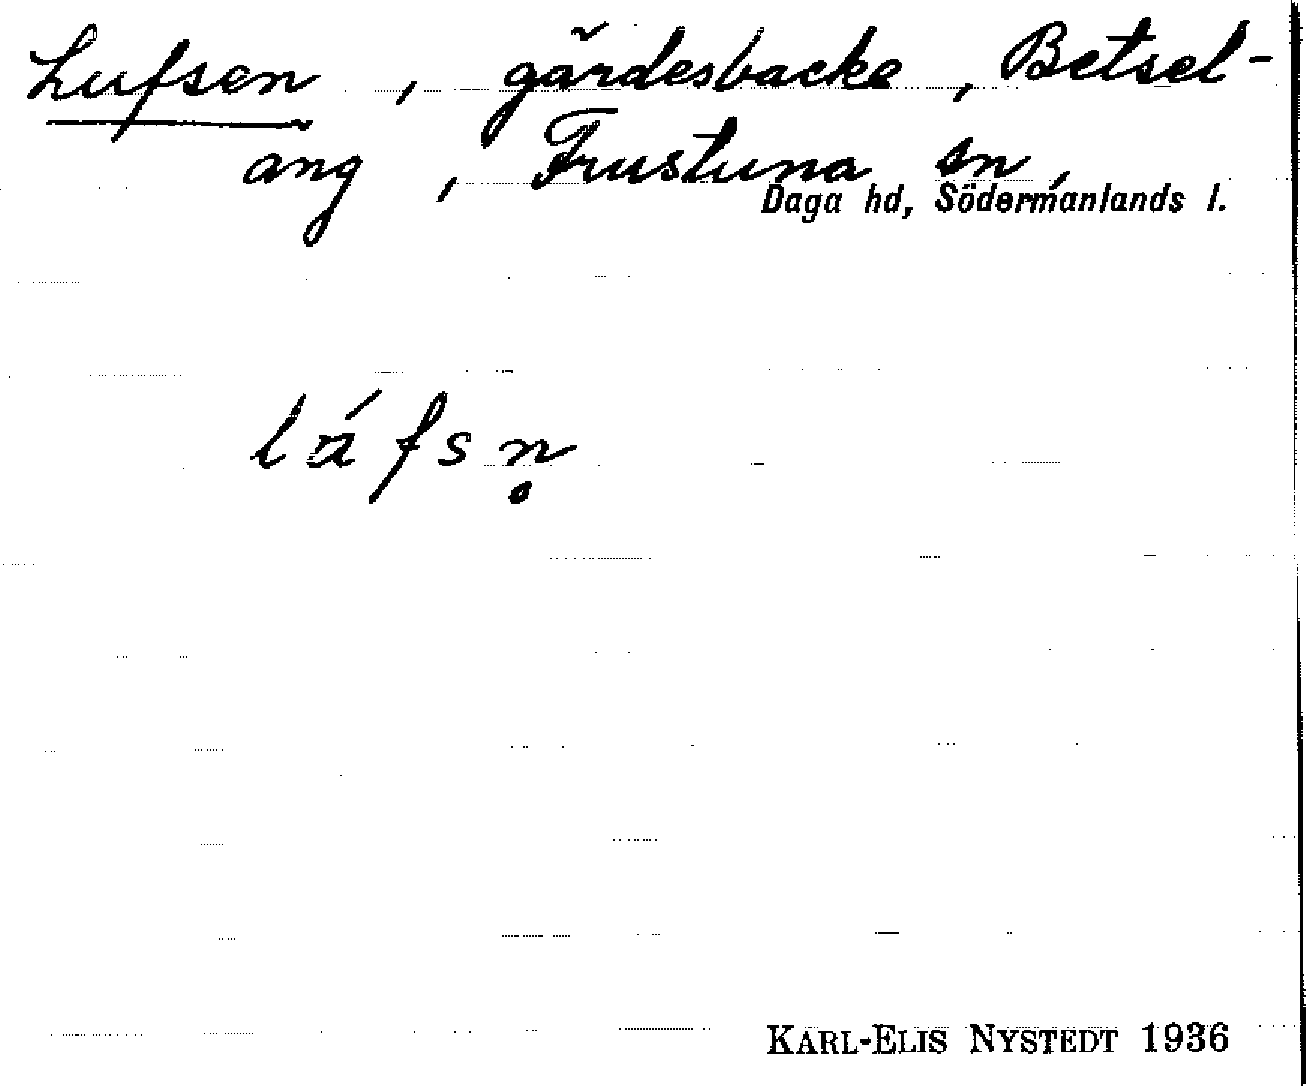 Lufsen, gärdesbacke, Betsel-
ang, Frustuna sn,
Daga hd, Södermanlands l.
láfsn̥
KARL-ELIS NYSTEDT 1936